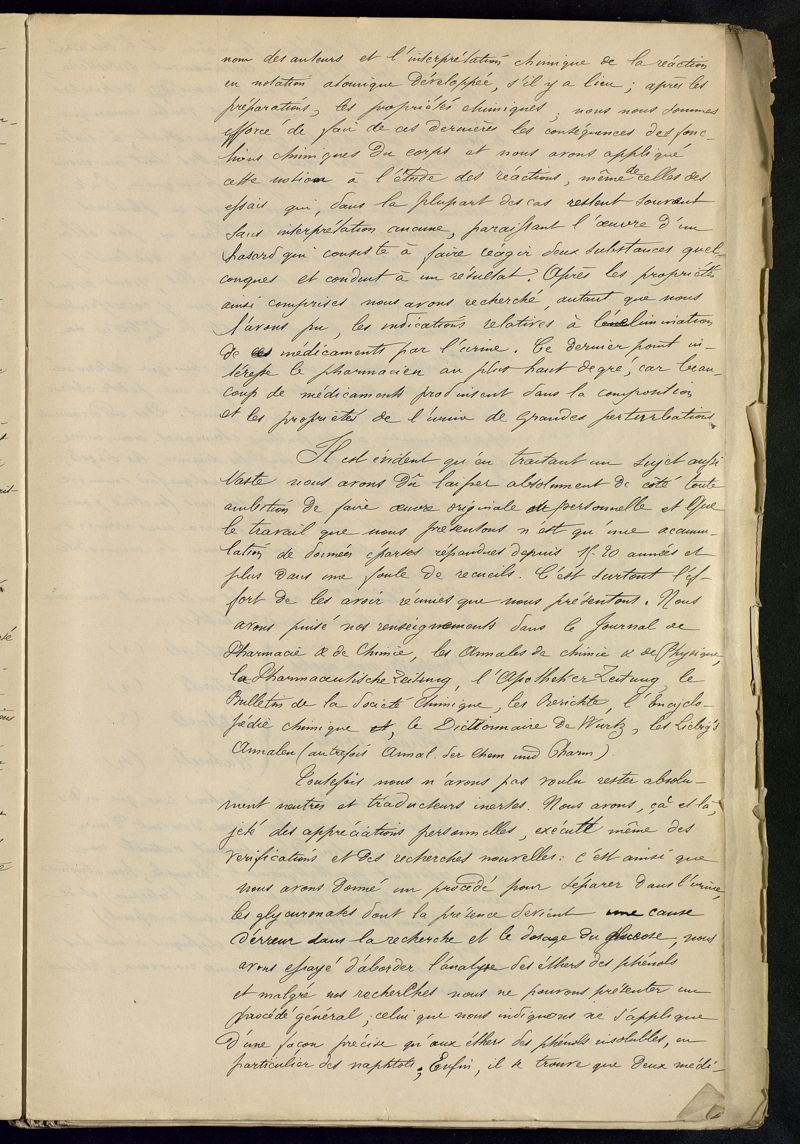 nom des auteurs et l'interprétation chimique de la réaction
en notation atomique développée, s'il y a lieu ; après les
préparations, les propriétés chimiques, nous nous sommes
efforcé de faire de ces dernières les conséquences des fonc-
tions chimiques du corps et nous avons appliqué
cette notion à l'étude des réactions, même de celles des
essais qui, dans la plupart des cas restent souvent
sans interprétation aucune, paraissant l'œuvre d'un
hasard qui consiste à faire réagir deux substances quel-
conques et conduit à un résultat. Après les propriétés
ainsi comprises nous avons recherché, autant que nous
l'avons pu, les indications relatives à l'élimination
de ces médicaments par l'urine. Ce dernier point in-
téresse le pharmacien au plus haut degré, car beau-
coup de médicaments produisent dans la composition
et les propriétés de l'urine de grandes perturbations
Il est évident qu'en traitant un sujet aussi
vaste nous avons dû laisser absolument de côté toute
ambition de faire œuvre originale et personnelle et que
le travail que nous présentons n'est qu'une accumu-
lation de données éparses répandues depuis 15-20 années et
plus dans une foule de recueils. C'est surtout l'ef-
fort de les avoir réunies que nous présentons. Nous
avons puisé nos renseignements dans le Journal de
Pharmacie & de Chimie, les Annales de chimie & de Physique,
la Pharmaceutische Zeitung, l'Apotheker Zeitung, le
Bulletin de la Société chimique, les Berichte, l'Encyclo-
pédie chimique, le Dictionnaire de Wurtz, les Liebig's
Annalen (autrefois Annal. der Chem und Pharm)
Toutefois nous n'avons pas voulu rester absolu-
ment neutres et traducteurs inertes. Nous avons, çà et là,
jeté des appréciations personnelles, exécuté même des
vérifications et des recherches nouvelles : c'est ainsi que
nous avons donné un procédé pour séparer dans l'urine,
les glycuronates dont la présence devient une cause
d'erreur dans la recherche et le dosage du glucose, nous
avons essayé d'aborder l'analyse des éthers des phénols
et malgré nos recherches nous ne pouvons présenter un
procédé général ; celui que nous indiquons ne s'applique
d'une façon précise qu'aux éthers des phénols insolubles, en
particulier des naphtols ; Enfin, il se trouve que deux médi-